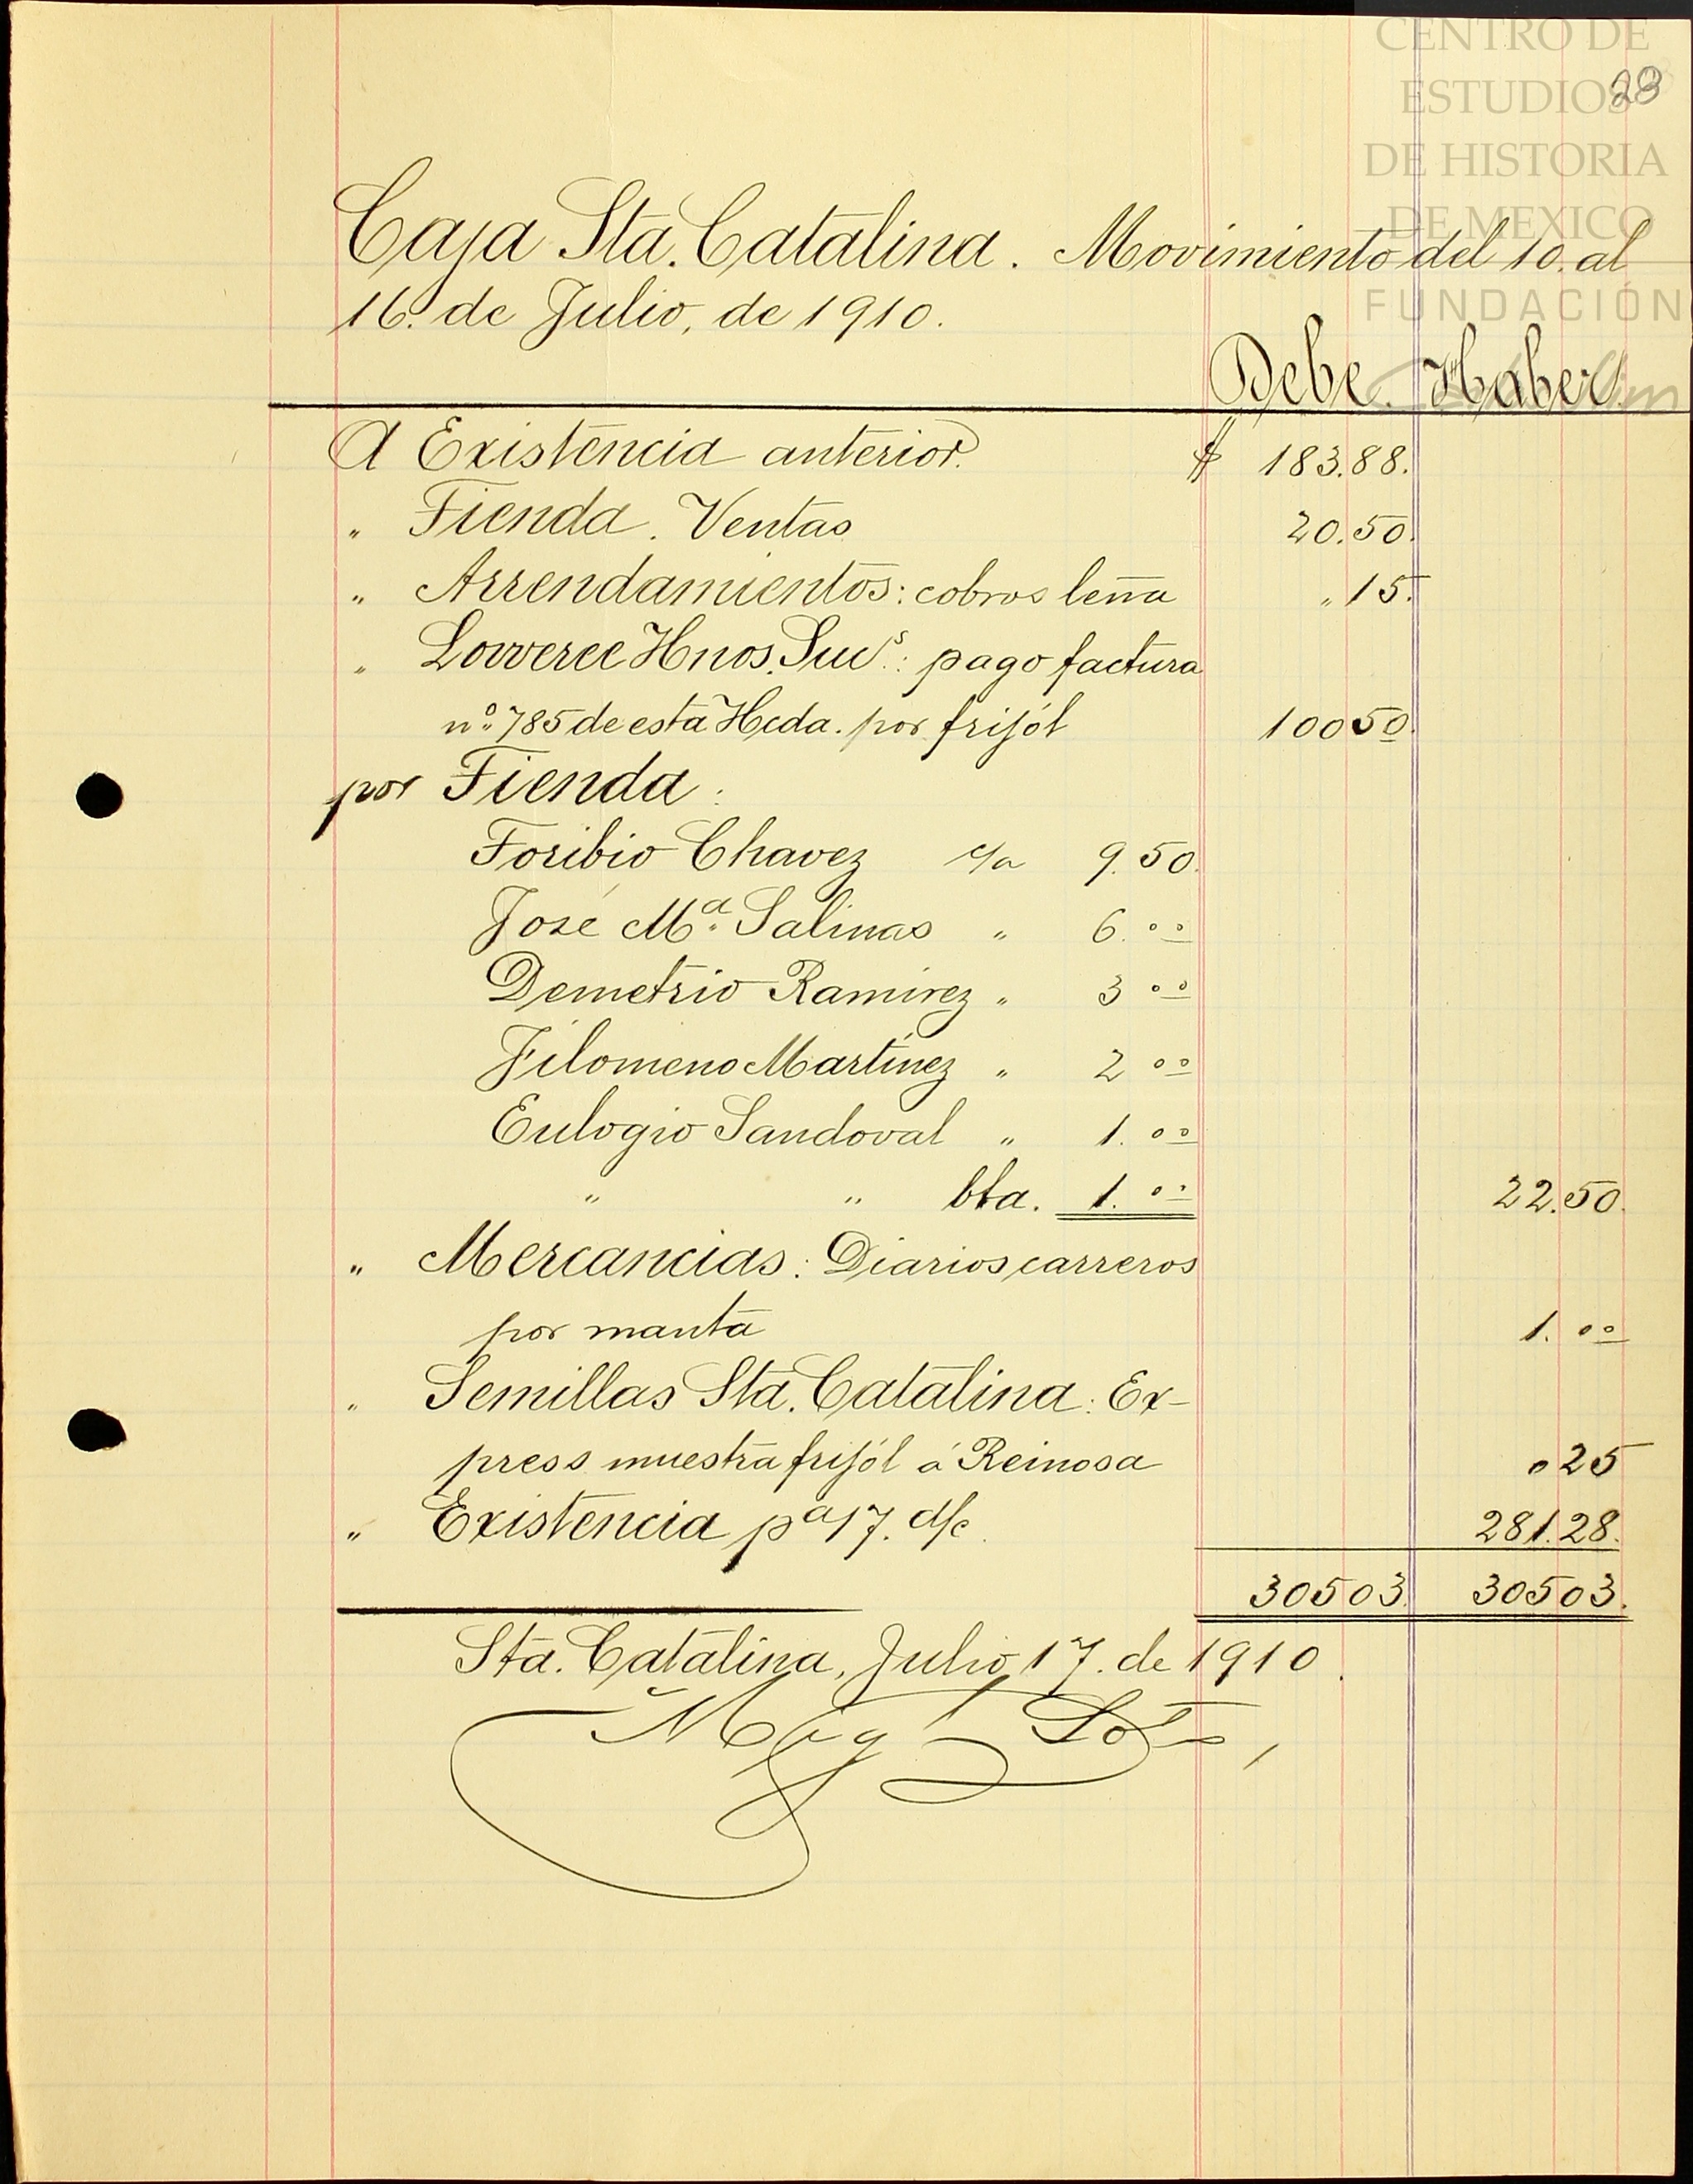 CENTRO DE
ESTUDIOS
DE HISTORIA
DE MEXICO
FUNDACIÓN
Caja Sta. Catalina. Movimiento del 10. al
16. de Julio, de 1910.
Debe. Haber.
A Existencia anterior. $ 183.88.
" Tienda. Ventas 20.50.
" Arrendamientos: cobros leña " 15.
" Hnos. Sucs: pago factura
nº 785 de esta Hcda. por frijól 100 50.
por Tienda:
Toribio Chavez c/a 9.50.
José Ma. Salinas " 6. 00
Demetrio Ramirez " 3 00
Filomeno Martínez " 2 00
Eulogio Sandoval " 1. 00
" " bta. 1. 00 22.50.
" Mercancias: Diarios carreros
por manta 1. 00
" Semillas Sta. Catalina: Ex-
press muestra frijól á Reinosa 0 25
" Existencia pa 17. d/c. 281.28.
305 03. 305 03.
Sta. Catalina, Julio 17. de 1910.